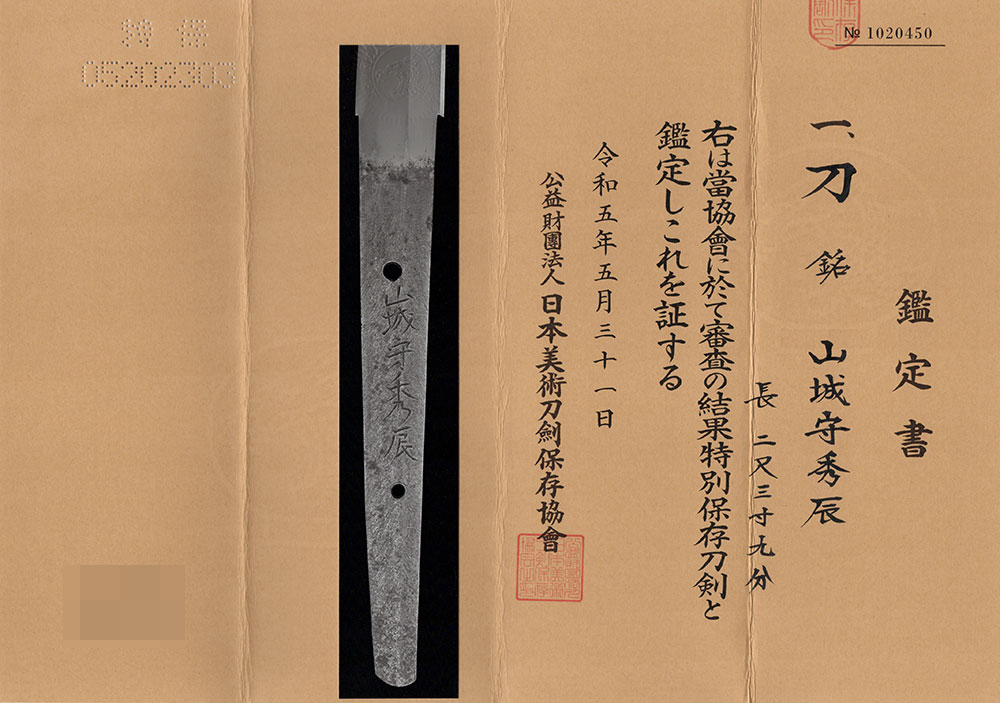 鑑定書
一、刀 銘 山城守秀辰
長 二尺三寸九分
右は當協會に於て審査の結果特別保存刀剣と
鑑定しこれを証する
令和五年五月三十一日
公益財團法人 日本美術刀劍保存協會
№ 1020450
山城守秀辰
特保
05202303